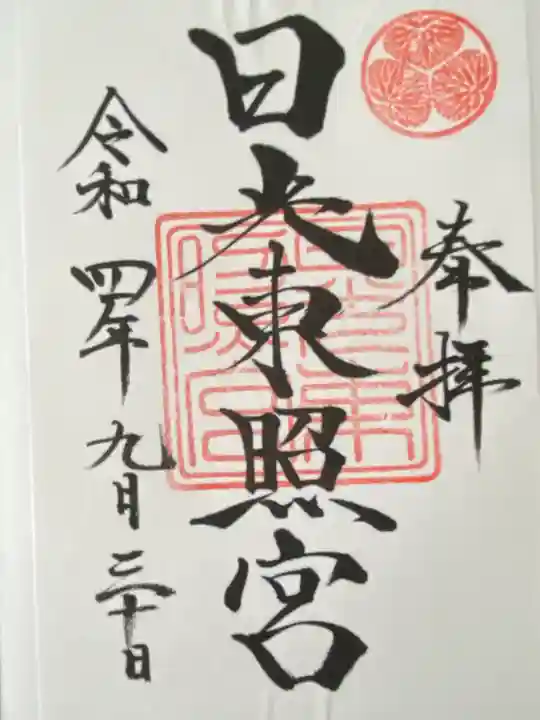 奉拝
日光東照宮
令和四年九月三十日